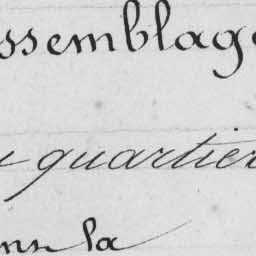 ssemblag
quartier
la